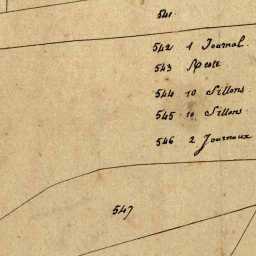 541
542 1 Journal.
543
544 10 Sillons.
545 10 Sillons.
546 2 Journaux
547